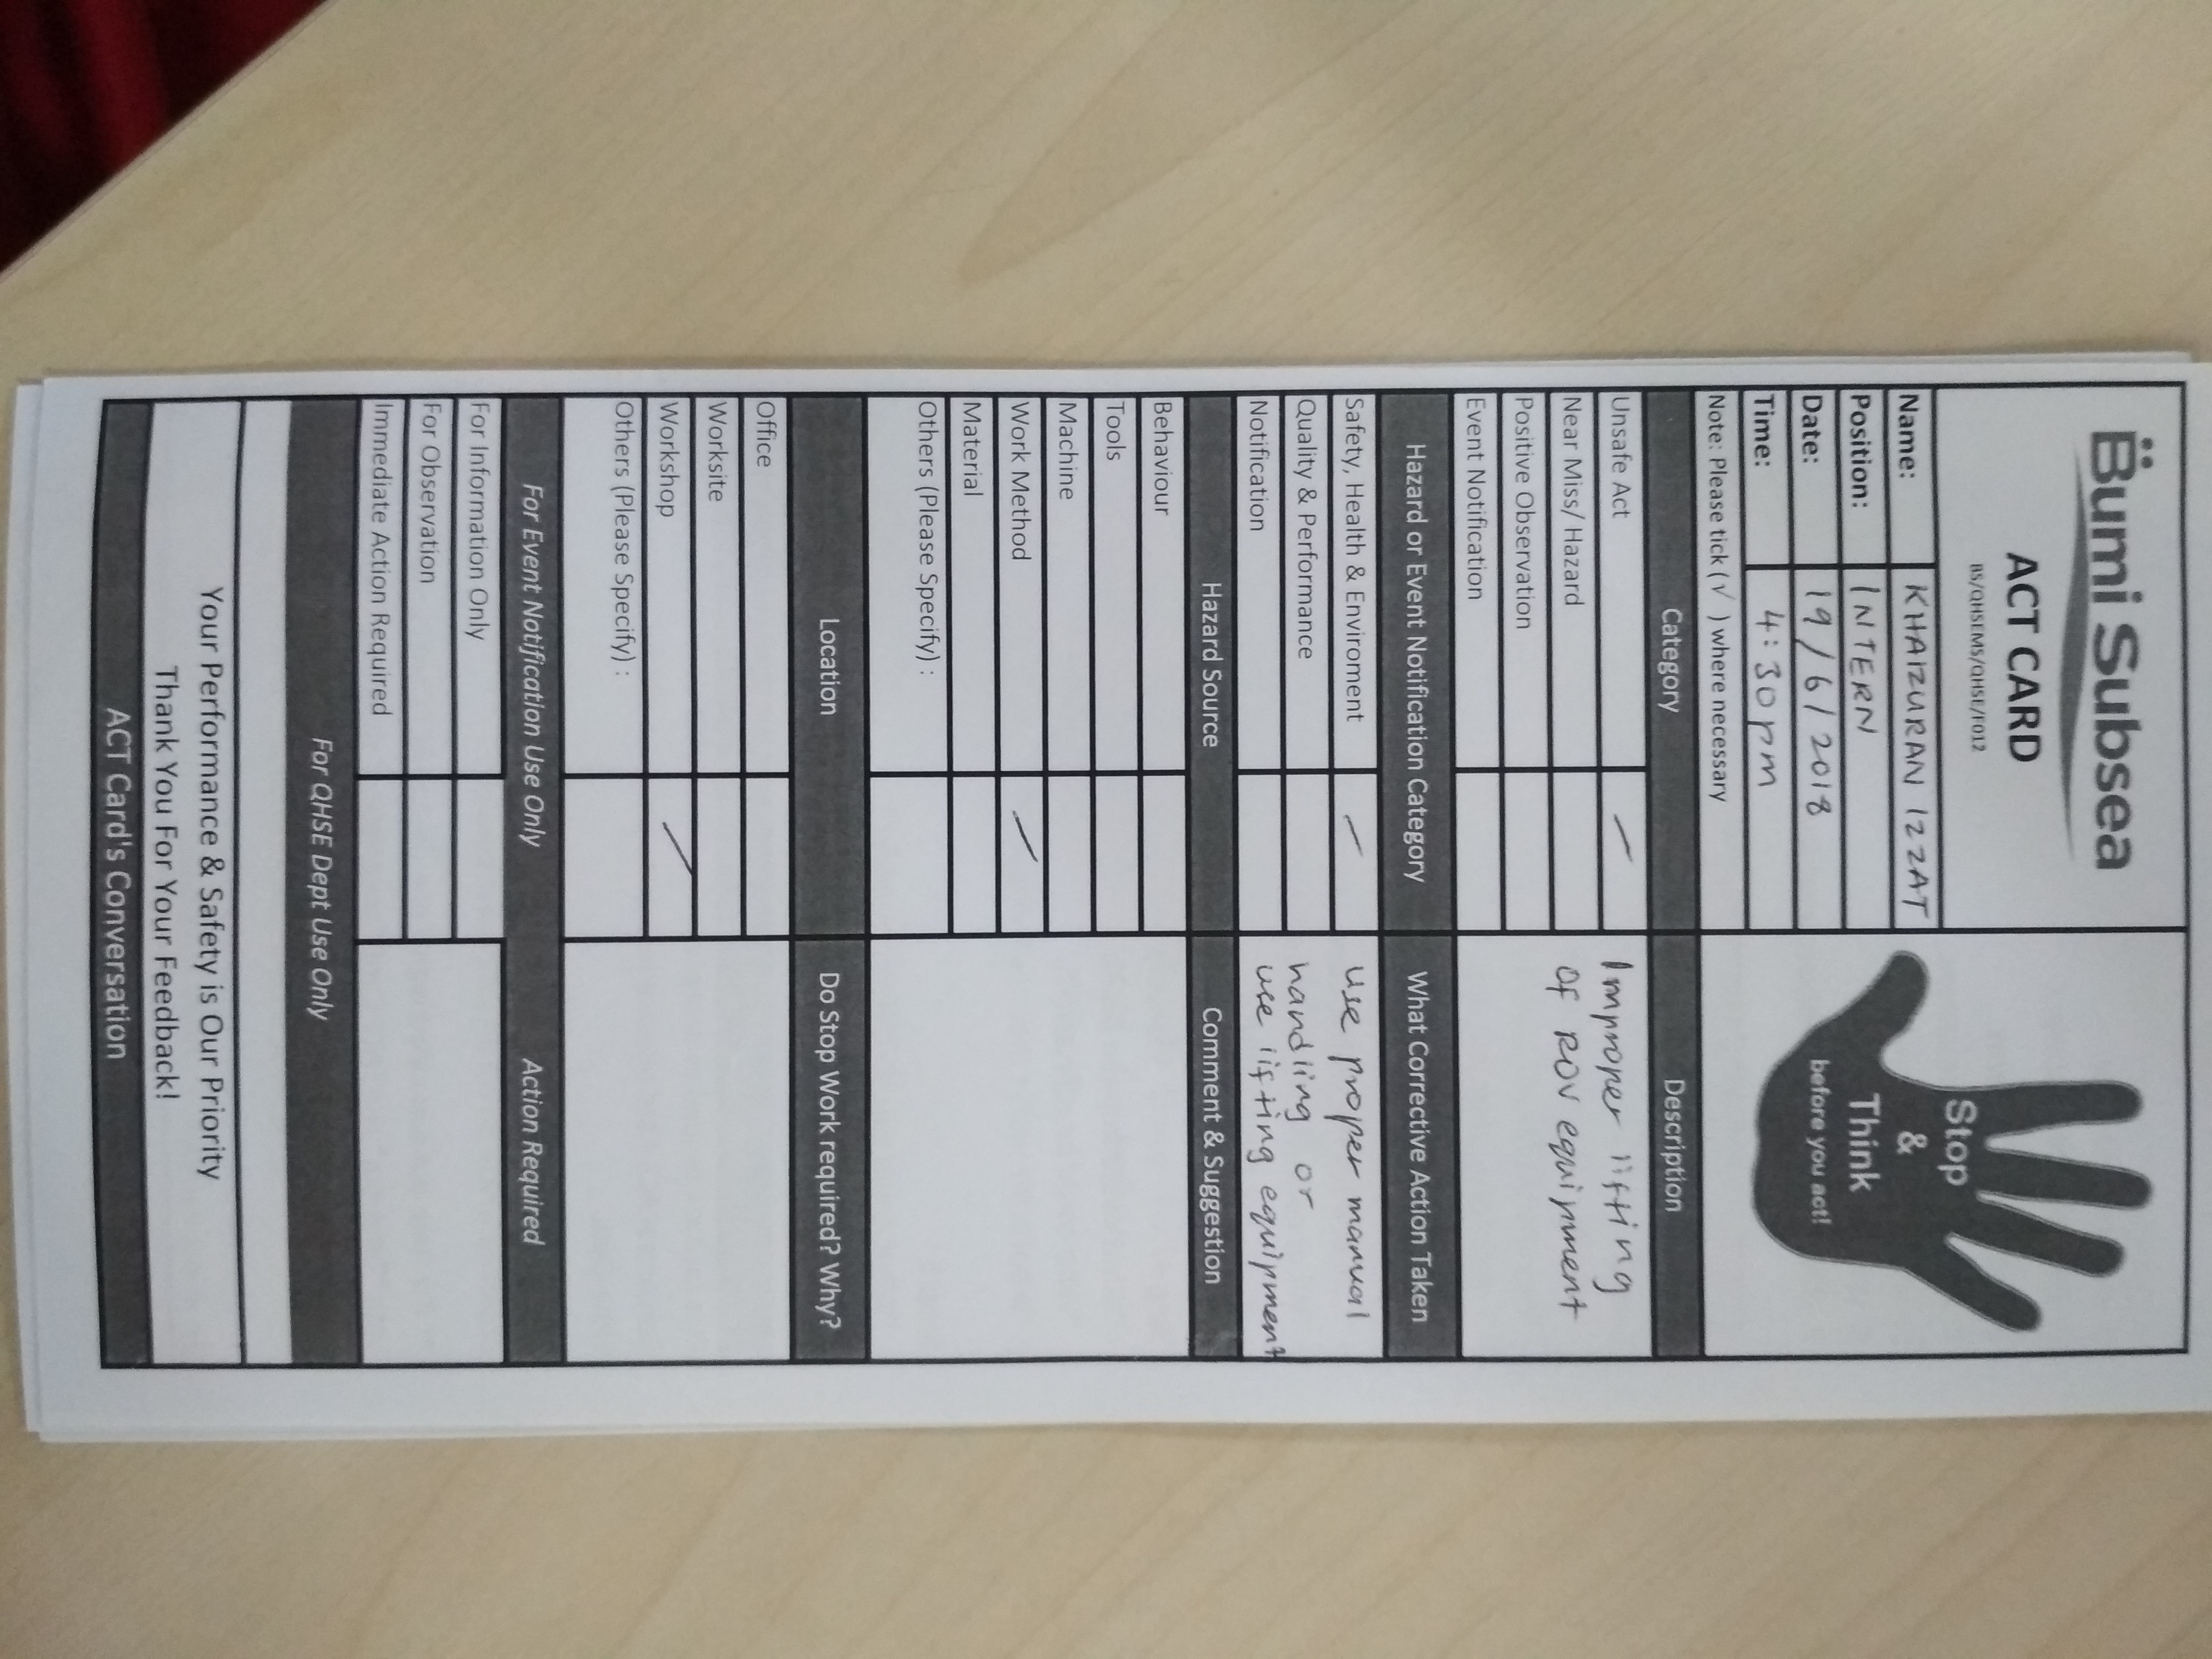 Bumi Subsea
ACT CARD
BS/QHSEMS/QHSE/F012
Stop
&
Think
before you act!
Name: KHAIZURAN IZZAT
Position: INTERN
Date: 19/6/2018
Time: 4:30pm
Note: Please tick (√ ) where necessary
Category Description
Unsafe Act / Improper lifting
Near Miss/ Hazard of ROV equipment
Positive Observation
Event Notification
Hazard or Event Notification Category What Corrective Action Taken
Safety, Health & Enviroment / use proper manual
Quality & Performance handling or
Notification use lifting equipment
Hazard Source Comment & Suggestion
Behaviour
Tools
Machine
Work Method /
Material
Others (Please Specify) :
Location Do Stop Work required? Why?
Office
Worksite
Workshop /
Others (Please Specify) :
For Event Notification Use Only Action Required
For Information Only
For Observation
Immediate Action Required
For QHSE Dept Use Only
Your Performance & Safety is Our Priority
Thank You For Your Feedback!
ACT Card's Conversation